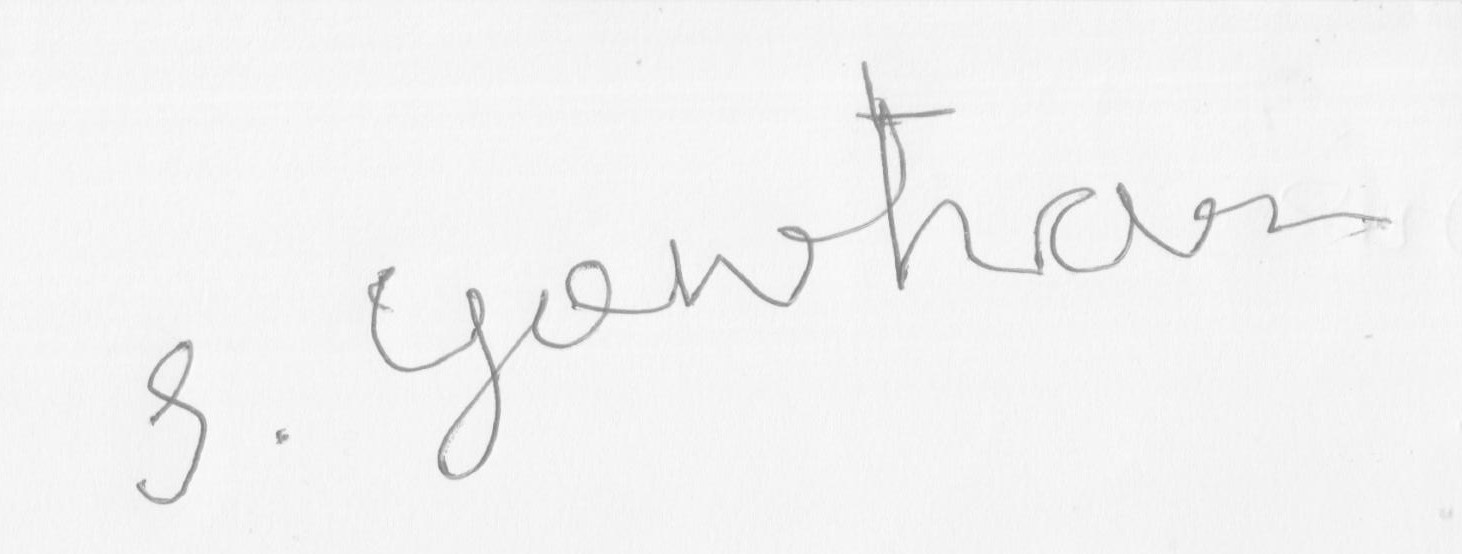 S. Gowtham